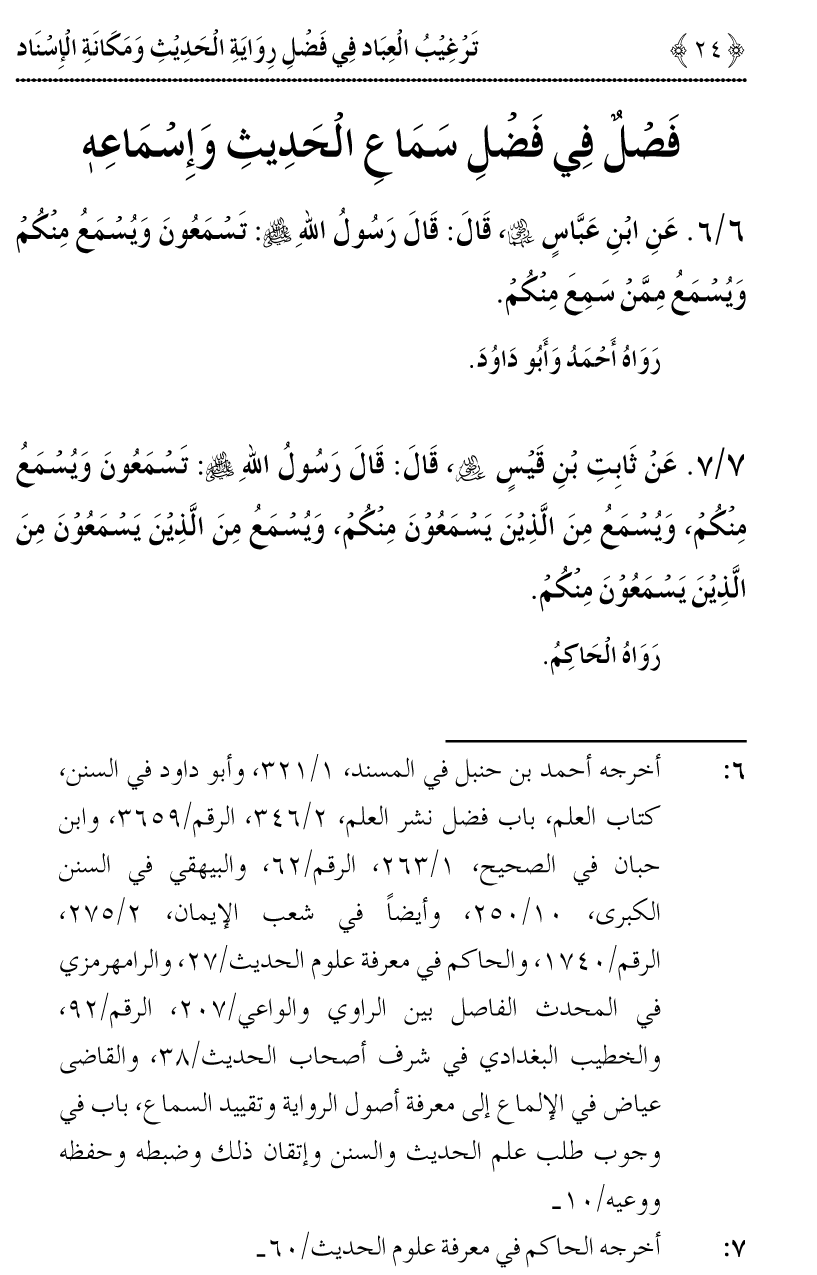 ﴿٢٤﴾ تَرْغِيْبُ الْعِبَاد فِي فَضْلِ رِوَايَةِ الْحَدِيْثِ وَمَكَانَةِ الْإِسْنَاد
فَصْلٌ فِي فَضْلِ سَمَاعِ الْحَدِيثِ وَإِسْمَاعِهِ
٦/٦. عَنِ ابْنِ عَبَّاسٍ رضي الله عنهما، قَالَ: قَالَ رَسُولُ اللهِ ﷺ: تَسْمَعُونَ وَيُسْمَعُ مِنْكُمْ
وَيُسْمَعُ مِمَّنْ سَمِعَ مِنْكُمْ.
رَوَاهُ أَحْمَدُ وَأَبُو دَاوُدَ.
٧/٧. عَنْ ثَابِتِ بْنِ قَيْسٍ رضي الله عنه، قَالَ: قَالَ رَسُولُ اللهِ ﷺ: تَسْمَعُونَ وَيُسْمَعُ
مِنْكُمْ، وَيُسْمَعُ مِنَ الَّذِيْنَ يَسْمَعُوْنَ مِنْكُمْ، وَيُسْمَعُ مِنَ الَّذِيْنَ يَسْمَعُوْنَ مِنَ
الَّذِيْنَ يَسْمَعُوْنَ مِنْكُمْ.
رَوَاهُ الْحَاكِمُ.
٦: أخرجه أحمد بن حنبل في المسند، ٣٢١/١، وأبو داود في السنن،
كتاب العلم، باب فضل نشر العلم، ٣٤٦/٢، الرقم/٣٦٥٩، وابن
حبان في الصحيح، ٢٦٣/١، الرقم/٦٢، والبيهقي في السنن
الكبرى، ٢٥٠/١٠، وأيضاً في شعب الإيمان، ٢٧٥/٢،
الرقم/١٧٤٠، والحاكم في معرفة علوم الحديث/٢٧، والرامهرمزي
في المحدث الفاصل بين الراوي والواعي/٢٠٧، الرقم/٩٢،
والخطيب البغدادي في شرف أصحاب الحديث/٣٨، والقاضى
عياض في الإلماع إلى معرفة أصول الرواية وتقييد السماع، باب في
وجوب طلب علم الحديث والسنن وإتقان ذلك وضبطه وحفظه
ووعيه/١٠ـ
٧: أخرجه الحاكم في معرفة علوم الحديث/٦٠ـ